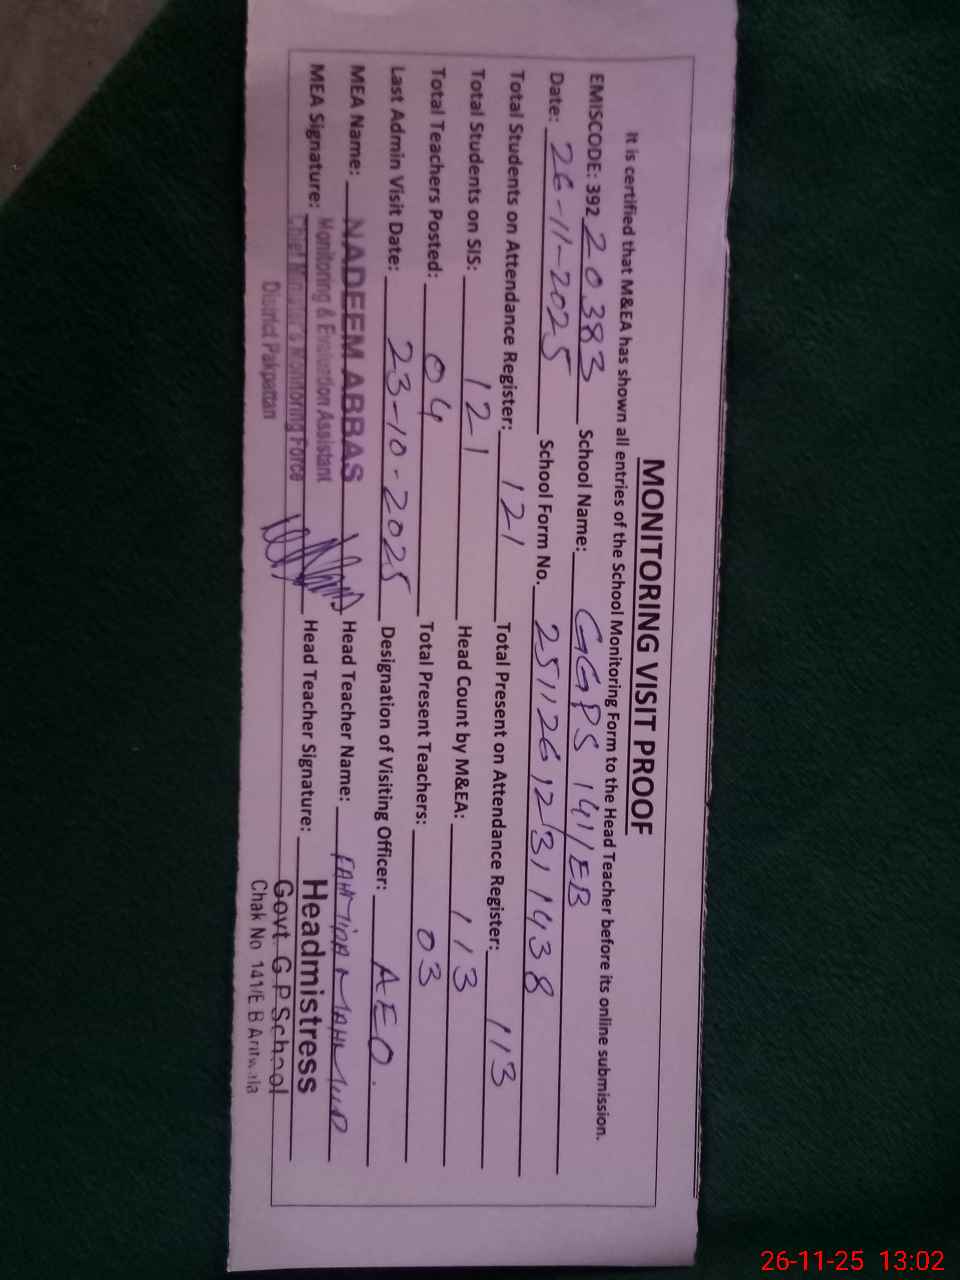 MONITORING VISIT PROOF
It is certified that M&EA has shown all entries of the School Monitoring Form to the Head Teacher before its online submission.
EMISCODE: 392 20383 School Name: GGPS 141/EB
Date: 26-11-2025 School Form No. 25112612311438
Total Students on Attendance Register: 121 Total Present on Attendance Register: 113
Total Students on SIS: 121 Head Count by M&EA: 113
Total Teachers Posted: 04 Total Present Teachers: 03
Last Admin Visit Date: 23-10-2025 Designation of Visiting Officer: AEO.
MEA Name: NADEEM ABBAS Head Teacher Name: MAHMUD
Monitoring & Evaluation Assistant
MEA Signature: Head Teacher Signature: Headmistress
Chief Minister's Monitoring Force Govt G.P School
District Pakpattan Chak No 141/E B Arifwala
26-11-25 13:02